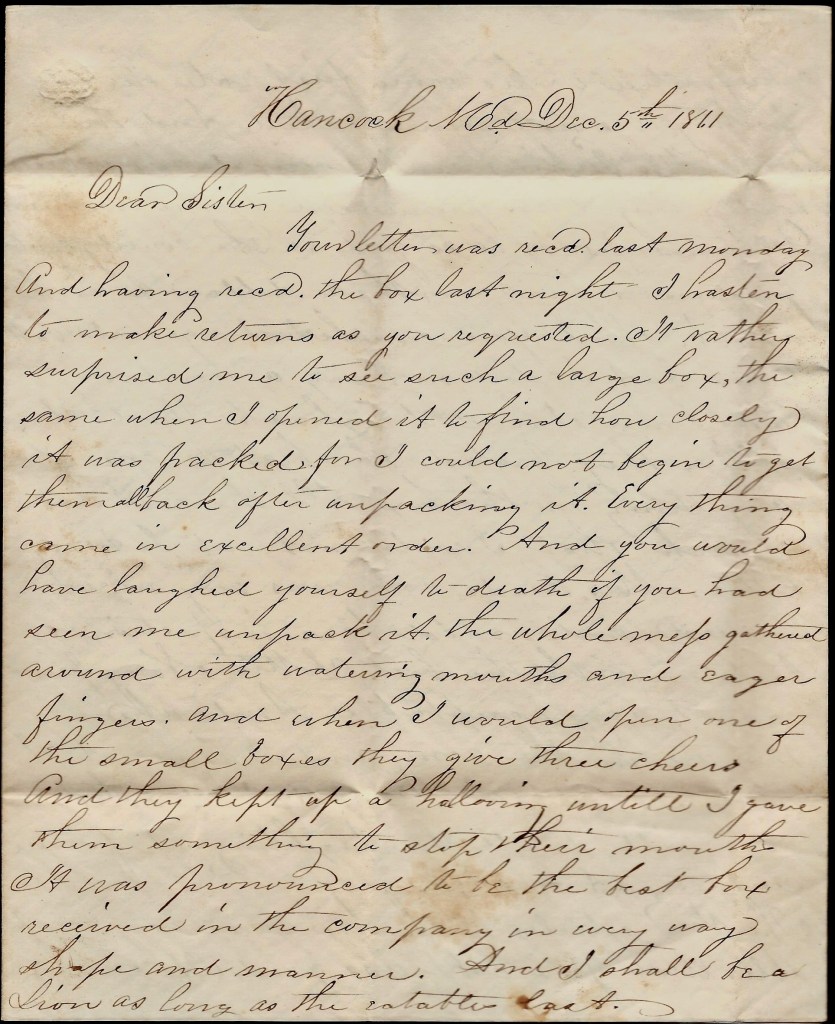 Hancock Md Dec. 5th 1861
Dear Sister
Your letter was recd. last monday
And having recd. the box last night I hasten
to make returns as you requested. It rather
surprised me to see such a large box, the
same when I opened it to find how closely
it was packed, for I could not begin to get
them all back after unpacking it. Every thing
came in excellent order. And you would
have laughed yourself to death if you had
seen me unpack it. the whole mess gathered
around with watering mouths and eager
fingers. and when I would open one of
the small boxes they give three cheers
And they kept up a hallooing untill I gave
them something to stop their mouths
It was pronounced to be the best box
received in the company in every way
shape and manner. And I shall be a
Lion as long as the eatables last.